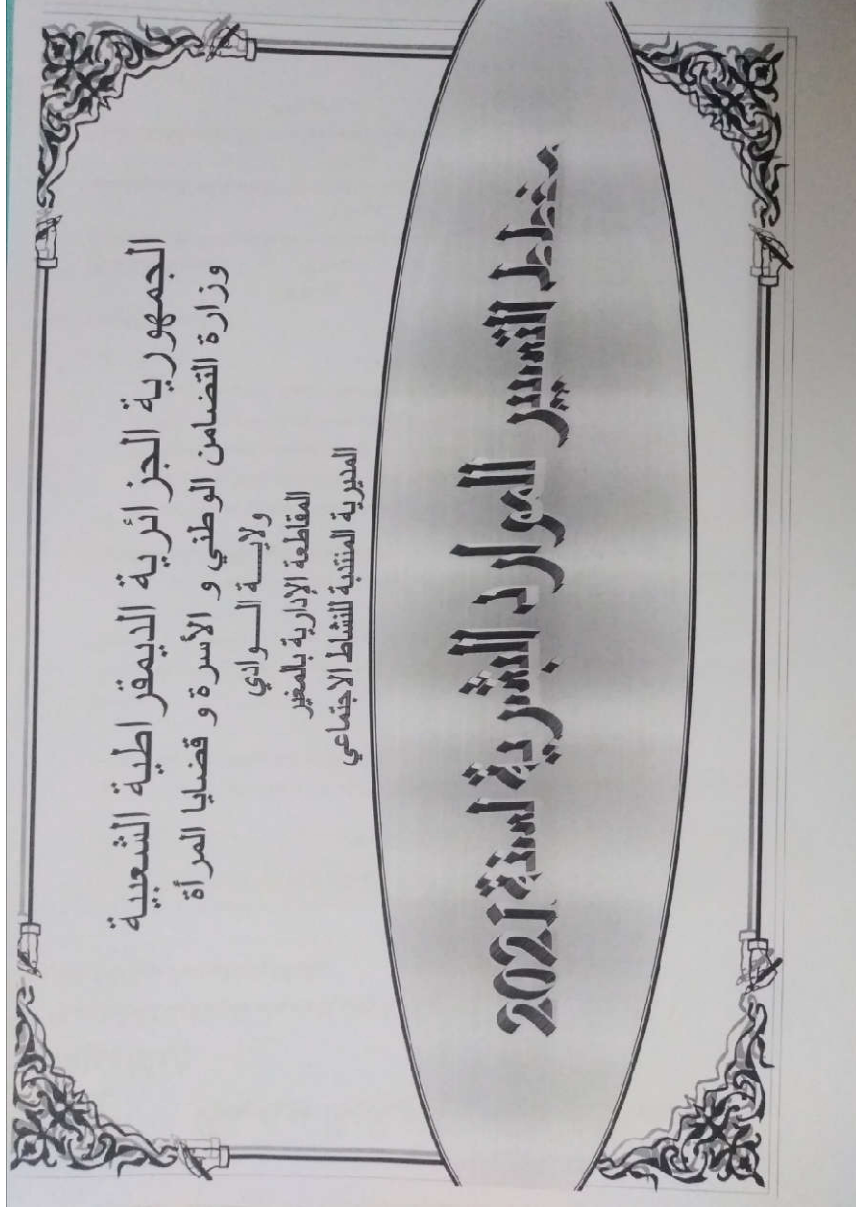 الجمهورية الجزائرية الديمقراطية الشعبية
وزارة التضامن الوطني و الأسرة و قضايا المرأة
ولايــة الــوادي
المقاطعة الإدارية بالمغير
المديرية المنتدبة للنشاط الاجتماعي
مخطط التسيير الموارد البشرية لسنة 2021